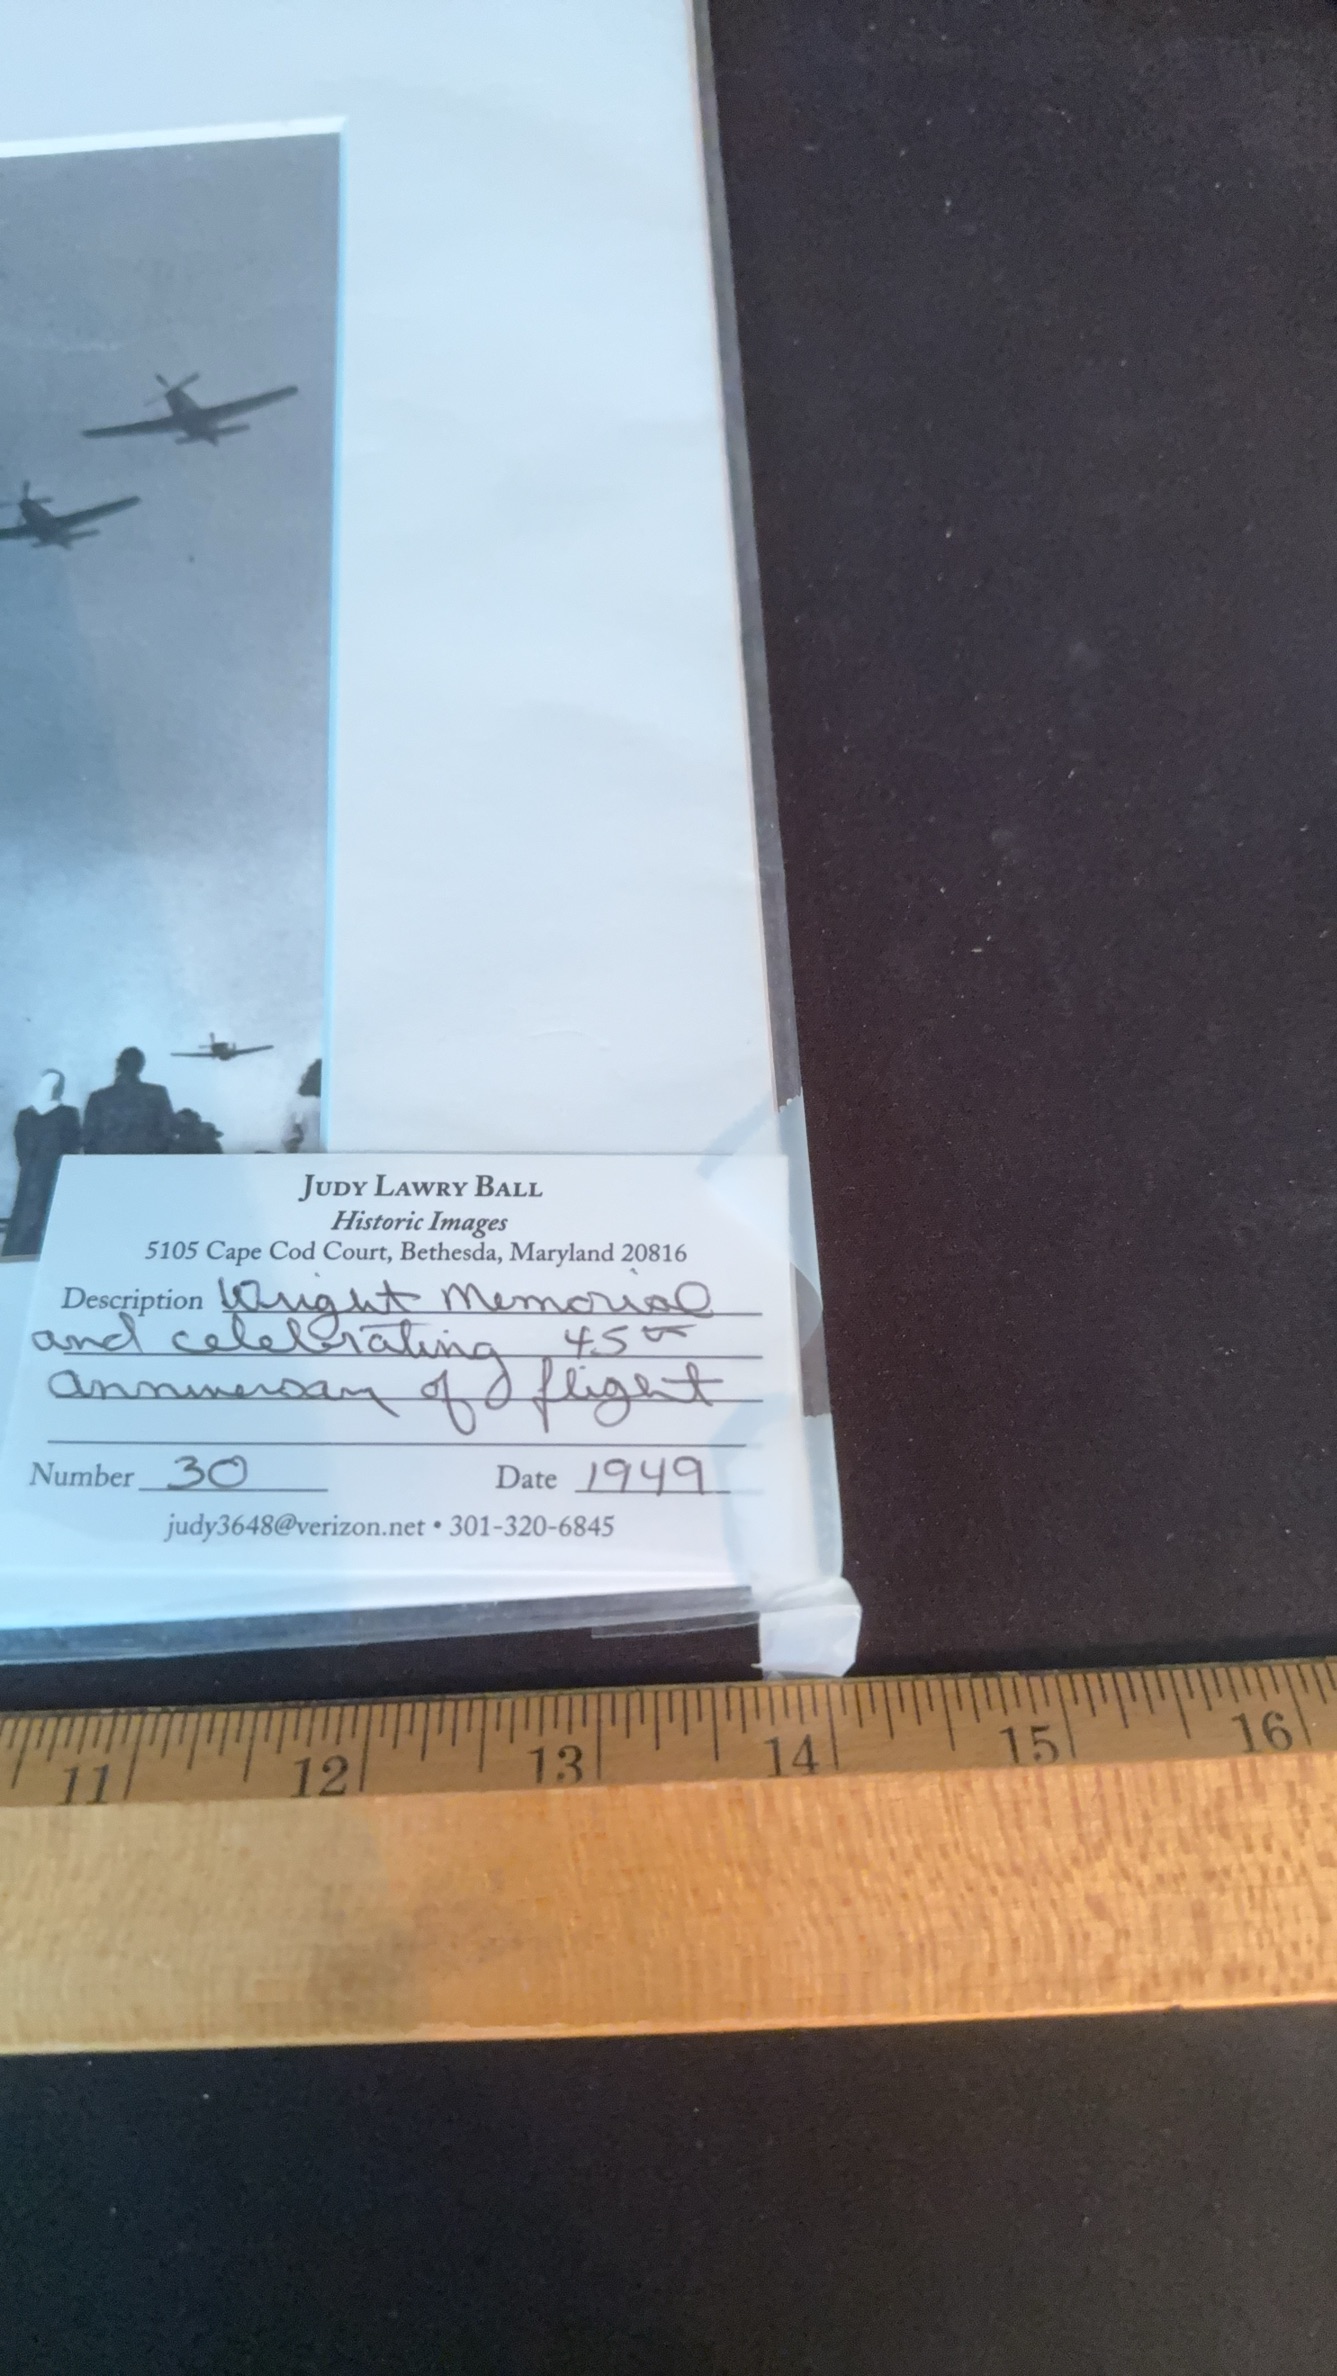 JUDY LAWRY BALL
Historic Images
5105 Cape Cod Court, Bethesda, Maryland 20816
Description Wright Memorial
and celebrating 45th
anniversary of flight
Number 30 Date 1949
judy3648@verizon.net • 301-320-6845
11 12 13 14 15 16